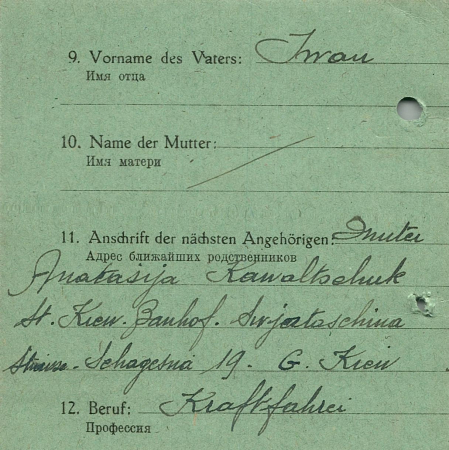 9. Vorname des Vaters: Iwan
Имя отца
10. Name der Mutter:
Имя матери
11. Anschrift der nächsten Angehörigen:
Адрес ближайших родственников
Anatasija Kawaltschuk
St. Kiew. Banhof. Swjataschina
19. G. Kiew
12. Beruf: Kraftfahrei
Профессия